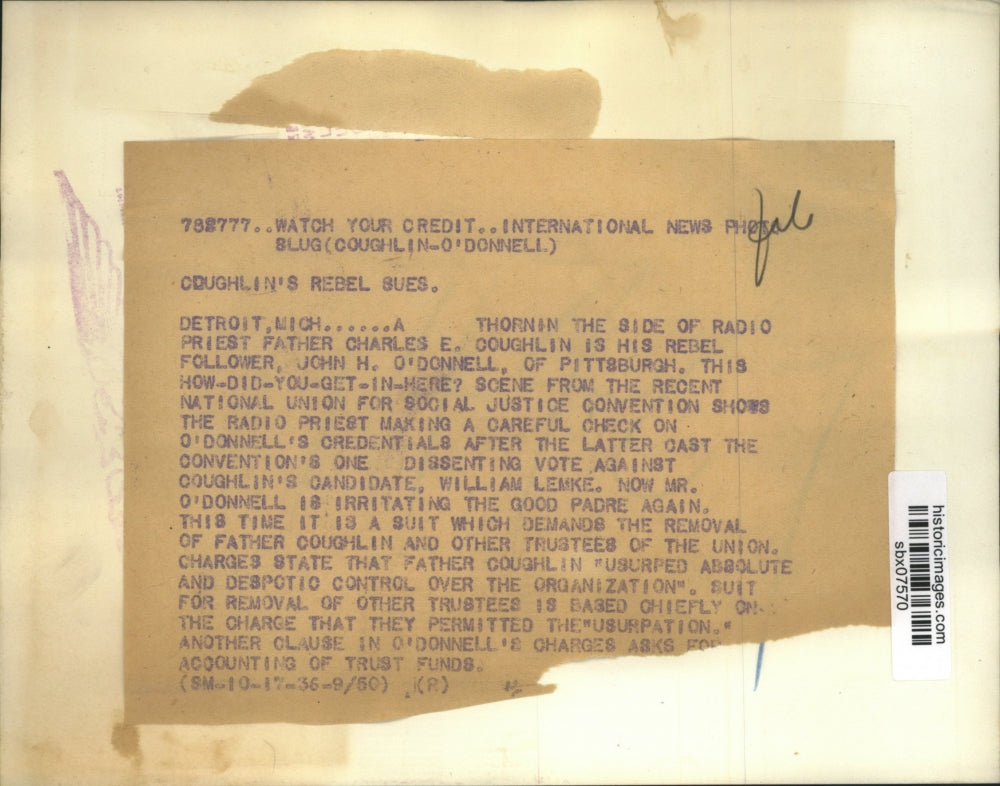 782777..WATCH YOUR CREDIT..INTERNATIONAL NEWS PHOTO
SLUG(COUGHLIN-O'DONNELL)
COUGHLIN'S REBEL SUES.
DETROIT,MICH......A THORNIN THE SIDE OF RADIO
PRIEST FATHER CHARLES E. COUGHLIN IS HIS REBEL
FOLLOWER, JOHN H. O'DONNELL, OF PITTSBURGH. THIS
HOW-DID-YOU-GET-IN-HERE? SCENE FROM THE RECENT
NATIONAL UNION FOR SOCIAL JUSTICE CONVENTION SHOWS
THE RADIO PRIEST MAKING A CAREFUL CHECK ON
O'DONNELL'S CREDENTIALS AFTER THE LATTER CAST THE
CONVENTION'S ONE DISSENTING VOTE AGAINST
COUGHLIN'S CANDIDATE, WILLIAM LEMKE. NOW MR.
O'DONNELL IS IRRITATING THE GOOD PADRE AGAIN.
THIS TIME IT IS A SUIT WHICH DEMANDS THE REMOVAL
OF FATHER COUGHLIN AND OTHER TRUSTEES OF THE UNION.
CHARGES STATE THAT FATHER COUGHLIN "USURPED ABSOLUTE
AND DESPOTIC CONTROL OVER THE ORGANIZATION". SUIT
FOR REMOVAL OF OTHER TRUSTEES IS BASED CHIEFLY ON
THE CHARGE THAT THEY PERMITTED THE"USURPATION."
ANOTHER CLAUSE IN O'DONNELL'S CHARGES ASKS FOR
ACCOUNTING OF TRUST FUNDS.
(SM-10-17-36-9/50) (R)
historicimages.com
sbx07570